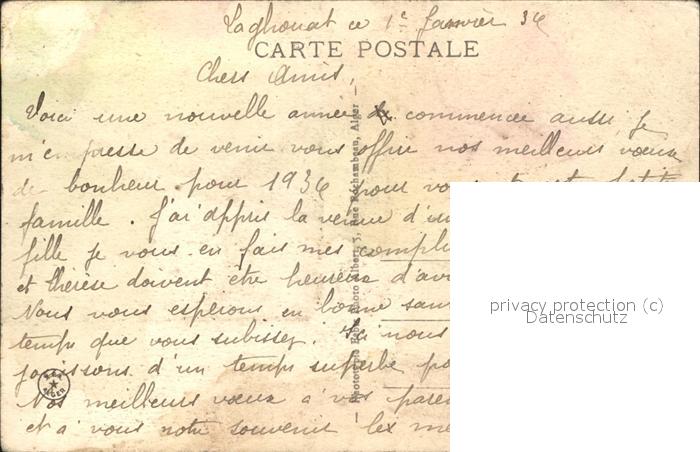 Laghouat ce 1er Janvier 34
CARTE POSTALE
Chers Amis,
Voici une nouvelle année de commencée aussi je
m'empresse de venir vous offrir nos meilleurs vœux
de bonheur pour 1934 pour
famille. J'ai appris la venue
fille je vous en fais mes
et thérèse doivent être heureux
Nous vous espérons en bonne
temps que vous subissez. Ici nous
jouissons d'un temps superbe
Nos meilleurs vœux à vos
et à vous notre souvenir les
Phototypie Photo Albert, 3, Rue Rochambeau, Alger
ALGER
privacy protection (c)
Datenschutz